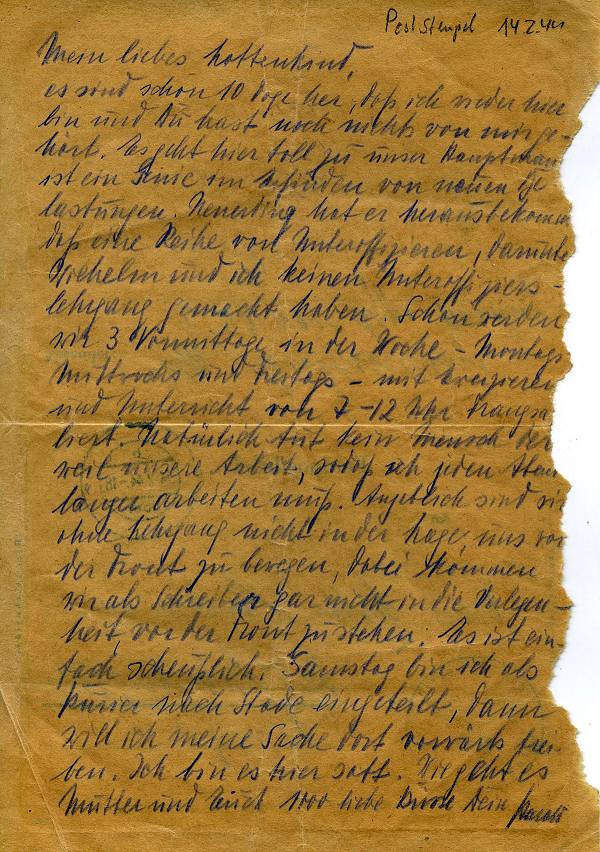 Poststempel 14.2.44
Mein liebes Lottenkind,
es sind schon 10 Tage her, daß ich wieder hier
bin und Du hast noch nichts von mir ge-
hört. Es geht hier toll zu unser Hauptman
ist ein Genie im erfinden von neuen
lastungen. Neuerding hat er herausbekomm
daß eine Reihe von Unteroffizieren, darunte
Wilhelm und ich keinen Unteroffiziers-
lehrgang gemacht haben. Schon werden
wir 3 Vormittage in der Woche - Montags
Mittwochs und Freitags - mit exerzieren
und Unterricht von 7-12 Uhr drangsa
liert. Natürlich tut kein Mensch der
weil unsere Arbeit, sodaß ich jeden Aben
länger arbeiten muß. Angeblich sind wir
ohne Lehrgang nicht in der Lage, uns vor
der Front zu bewegen, dabei kommen
wir als Schreiber gar nicht in die Verlegen-
heit, vor der Front zu stehen. Es ist ein-
fach scheußlich. Samstag bin ich als
Kurier nach Stade eingeteilt, dann
will ich meine Sache dort vorwärts trei-
ben. Ich bin es hier satt. Wie geht es
Mutter und Euch 1000 liebe Küsse Dein